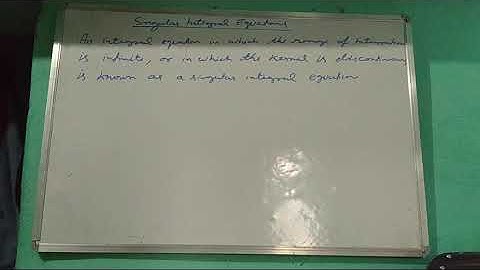 Singular Integral Equations
An integral equation in which the range of integration
is infinite, or in which the kernel is discontinuous
is known as a singular integral equation